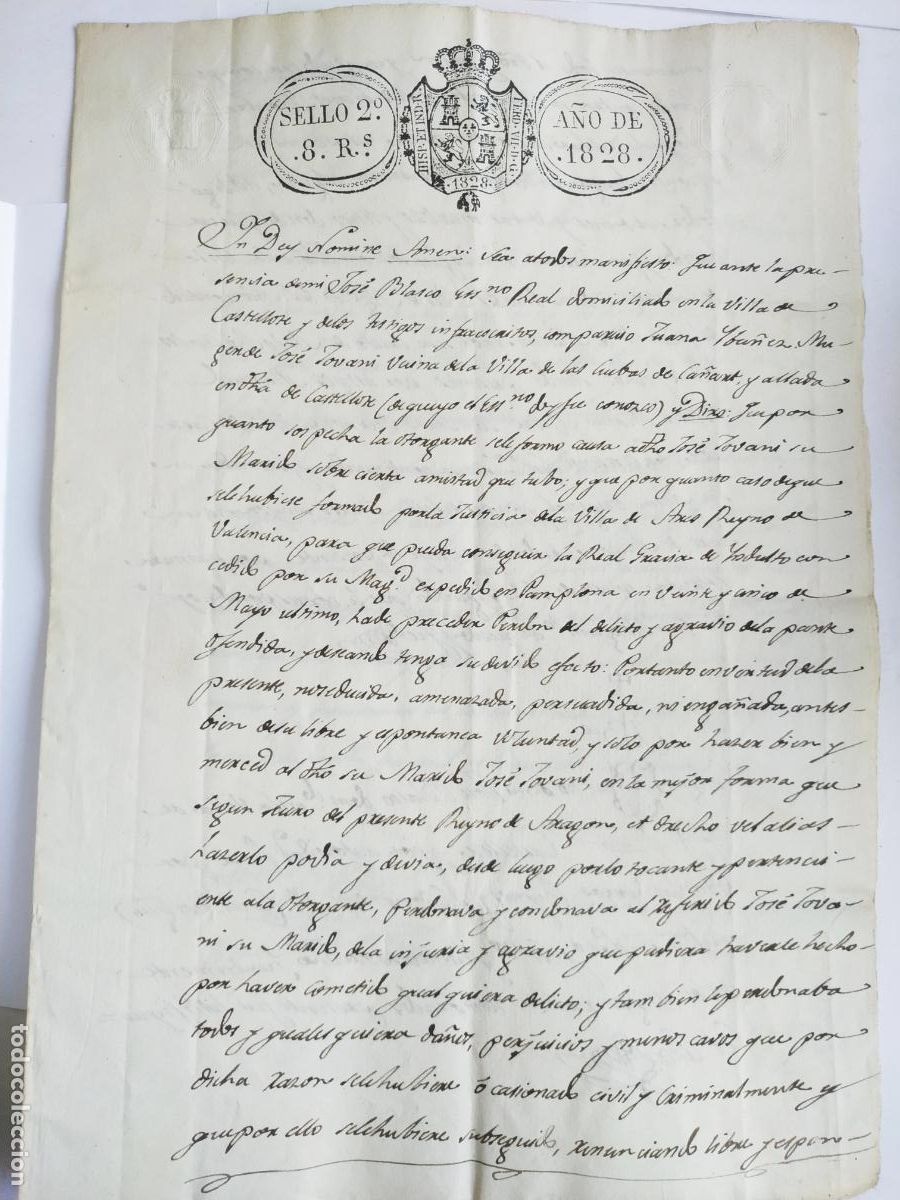 SELLO 2º
.8. Rs
HISP. ET IND. R.
1828
AÑO DE
.1828.
In Dey Nomine Amen: Sea atodos manifiesto: Que ante la pre-
sencia de mi José Blasco Essno Real domiciliado en la Villa de
Castellote y delos testigos infraescritos, comparecio Juana Ybañez Mu-
ger de José Tovani Vecina dela Villa de las Cubas de Cañart y allada
en dha de Castellote (de quiyo el Essno doy fee conozco) y Dixo: Que por
quanto sospecha la otorgante sele formo causa adho José Tovani su
Marido sobre cierta amistad que tubo; y que por quanto caso de que
sele hubiese formado por la Justicia dela Villa de Ares Reyno de
Valencia, para que pueda conseguir la Real Gracia de Yndulto con-
cedido por su Magd. expedido en Pamplona en Veinte y cinco de
Mayo ultimo, hade preceder Perdon del delicto y agravio dela parte
ofendida, y deseando tenga su devido efecto: Portanto en virtud dela
presente, no seducida, amenazada, persuadida, ni engañada, antes-
bien desu libre y espontanea voluntad, y solo por hazer bien y
merced al dho su Marido José Tovani, en la mejor forma que
segun fuero del presente Reyno de Aragon, et drecho vel alias-
hazerlo podia y devia, desde luego por lo tocante y perteneci-
ente ala otorgante, Perdonava y condonava al referido José Tova-
ni su Marido, dela injuria y agravio que pudiera haverle hecho-
por haver cometido qualquiera delicto; y tambien le perdonaba
todos y qualesquiera daños, perjuicios y menoscavos que por
dicha razon sele hubiere ocasionado civil y Criminalmente y
que por ello sele hubiere subseguido, renunciando libre y espon-
todocoleccion